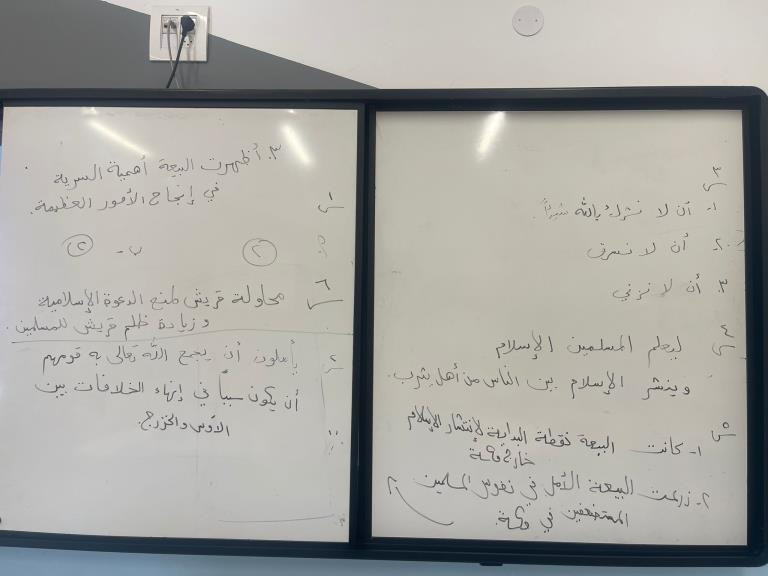 س٣
١- أن لا نشرك بالله شيئاً.
٢- أن لا نسرق
٣. أن لا نزني
س٤
ليعلم المسلمين الإسلام
وينشر الإسلام بين الناس من أهل يثرب.
س٥
١- كانت البيعة نقطة البداية لإنتشار الإسلام
خارج مكة
٢- زرعت البيعة الأمل في نفوس المسلمين
المستضعفين في مكة.
٣. أظهرت البيعة أهمية السرية
في إنجاح الأمور العظيمة.
س١
٢ ب- ٢
س٦ محاولة قريش لمنع الدعوة الإسلامية
وزيادة ظلم قريش للمسلمين.
س٢ يأملون أن يجمع الله تعالى به قومهم
أن يكون سبباً في إنهاء الخلافات بين
الأوس والخزرج.